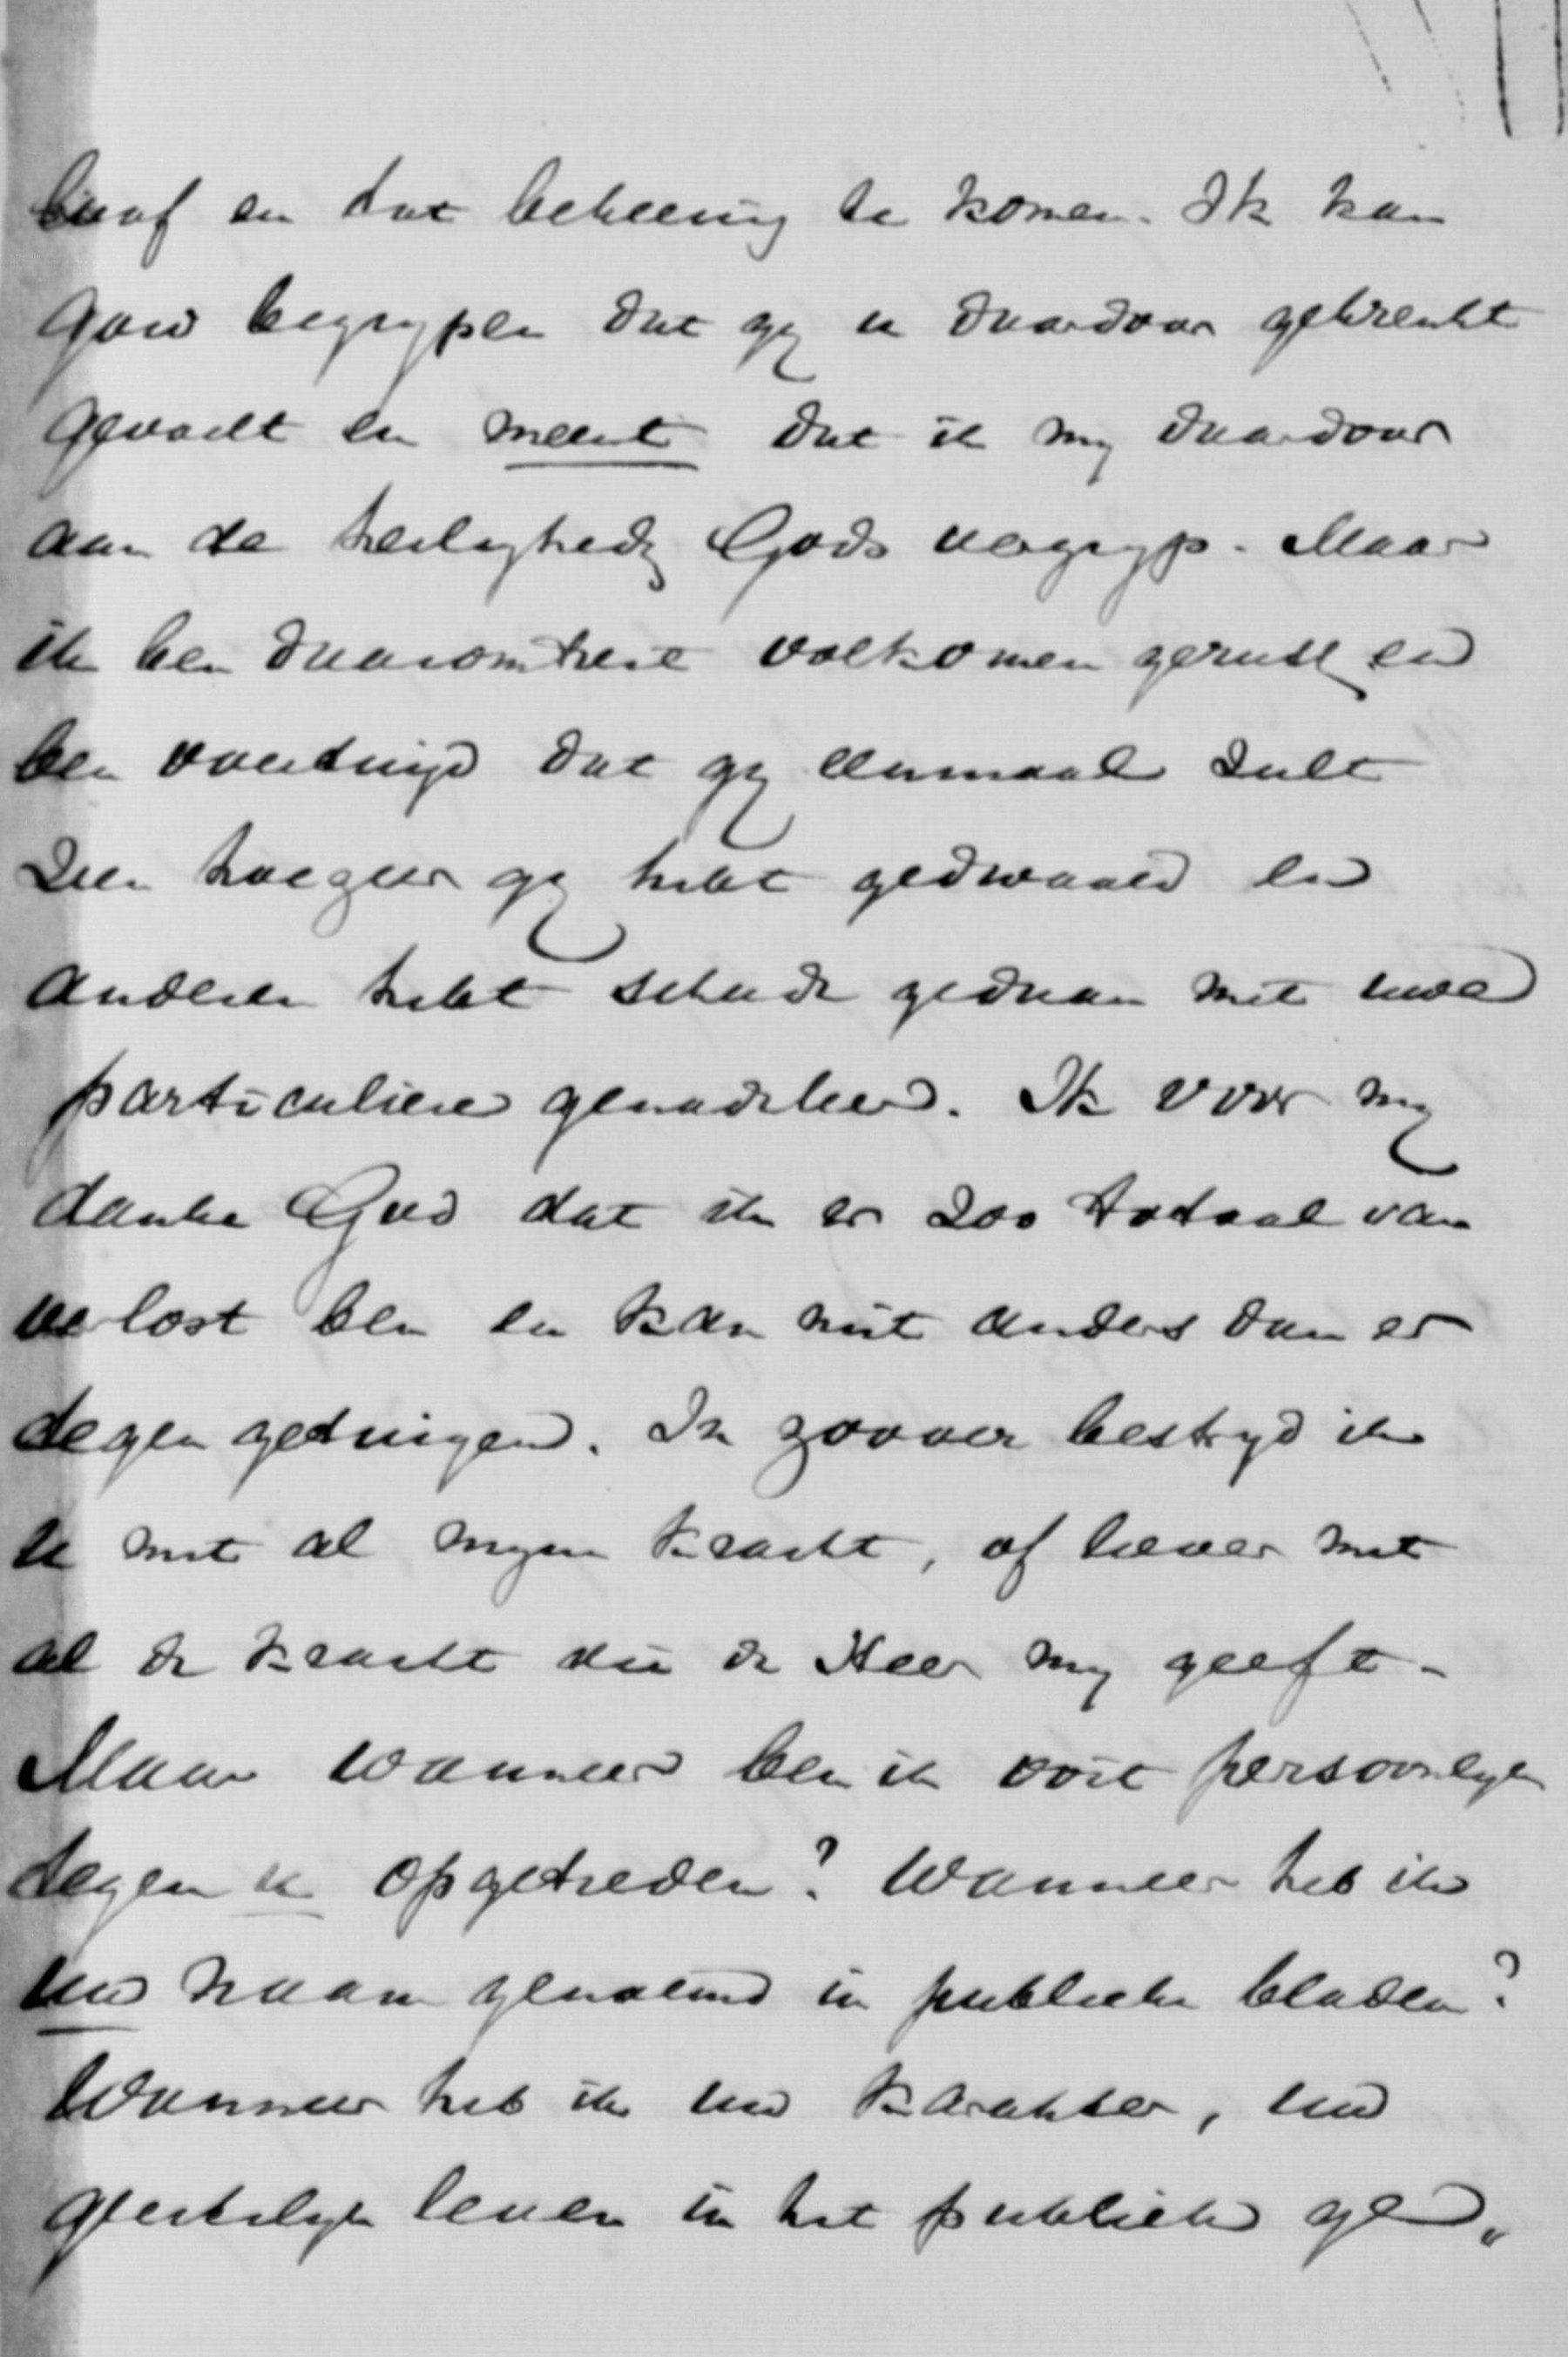 en tot bekeering te komen. Ik kan
gou begrypen dat gy u daardoor gekrenkt
gevoelt en meent dat ik my daardoor
aan de heiligheid Gods vergryp. Maar
ik ben daaromtrent volkomen gerust en
ben overtuigd dat gy eenmaal zult
zien hoezeer gy hebt gedwaald en
anderen hebt schade gedaan met uwe
particuliere genadeleer. Ik voor my
danke God dat ik er zoo totaal van
verlost ben en kan niet anders dan er
tegen getuigen. In zoover bestryd ik
u met al myne kracht, of liever met
al de kracht die de Heer my geeft.
Maar wanneer ben ik ooit persoonlyk
tegen u opgetreden? Wanneer heb ik
uw naam genoemd in publieke bladen?
Wanneer heb ik uw karakter, uw
geestelyk leven in het publiek ge„